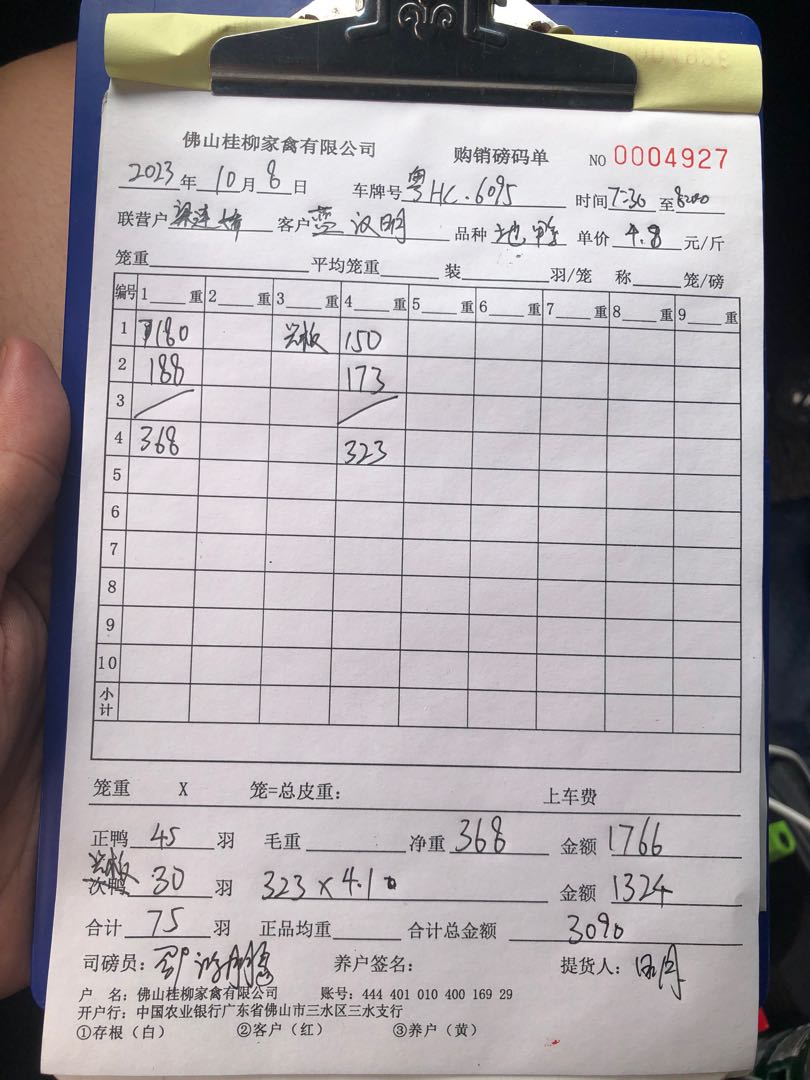 佛山桂柳家禽有限公司 购销磅码单 NO 0004927
2023年10月8日 车牌号粤HC.6095 时间7:30至8:00
联营户梁连 客户蓝汉明 品种地鸭 单价4.8元/斤
笼重 平均笼重 装 羽/笼 称 笼/磅
编号 1 重 2 重 3 重 4 重 5 重 6 重 7 重 8 重 9 重
1 180 150
2 188 173
3
4 368 323
5
6
7
8
9
10
小计
笼重 X 笼=总皮重: 上车费
正鸭 45 羽 毛重 净重 368 金额 1766
次鸭 30 羽 323×4.10 金额 1324
合计 75 羽 正品均重 合计总金额 3090
司磅员: 养户签名: 提货人:
户 名: 佛山桂柳家禽有限公司 账号: 444 401 010 400 169 29
开户行: 中国农业银行广东省佛山市三水区三水支行
①存根(白) ②客户(红) ③养户(黄)